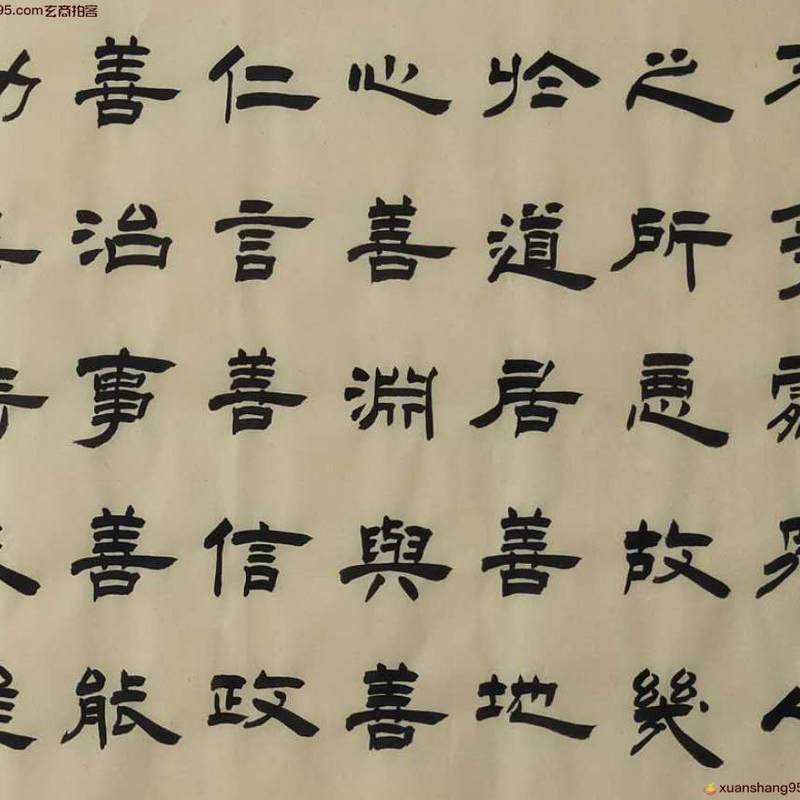 之所惡故幾
於道居善地
心善淵與善
仁言善信政
善治事善能
95.com玄商拍客
xuanshang95